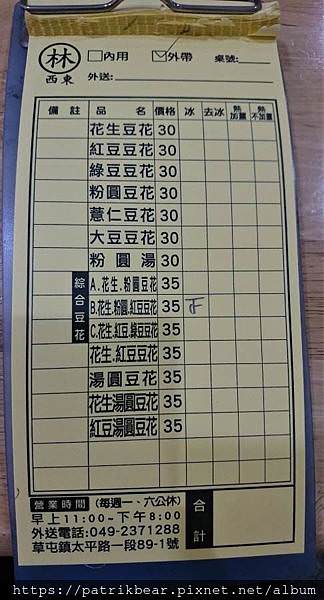 林
西東
□內用 ☑外帶 桌號:
外送:
備註 品名 價格 冰 去冰 熱加薑 熱不加薑
花生豆花 30
紅豆豆花 30
綠豆豆花 30
粉圓豆花 30
薏仁豆花 30
大豆豆花 30
粉圓湯 30
綜合豆花
A.花生.粉圓豆花 35
B.花生.粉圓.紅豆豆花 35 正
C.花生.紅豆.綠豆豆花 35
花生.紅豆豆花 35
湯圓豆花 35
花生湯圓豆花 35
紅豆湯圓豆花 35
營業時間 (每週一、六公休)
早上11:00~下午8:00
外送電話:049-2371288
草屯鎮太平路一段89-1號
合計
https://patrikbear.pixnet.net/album